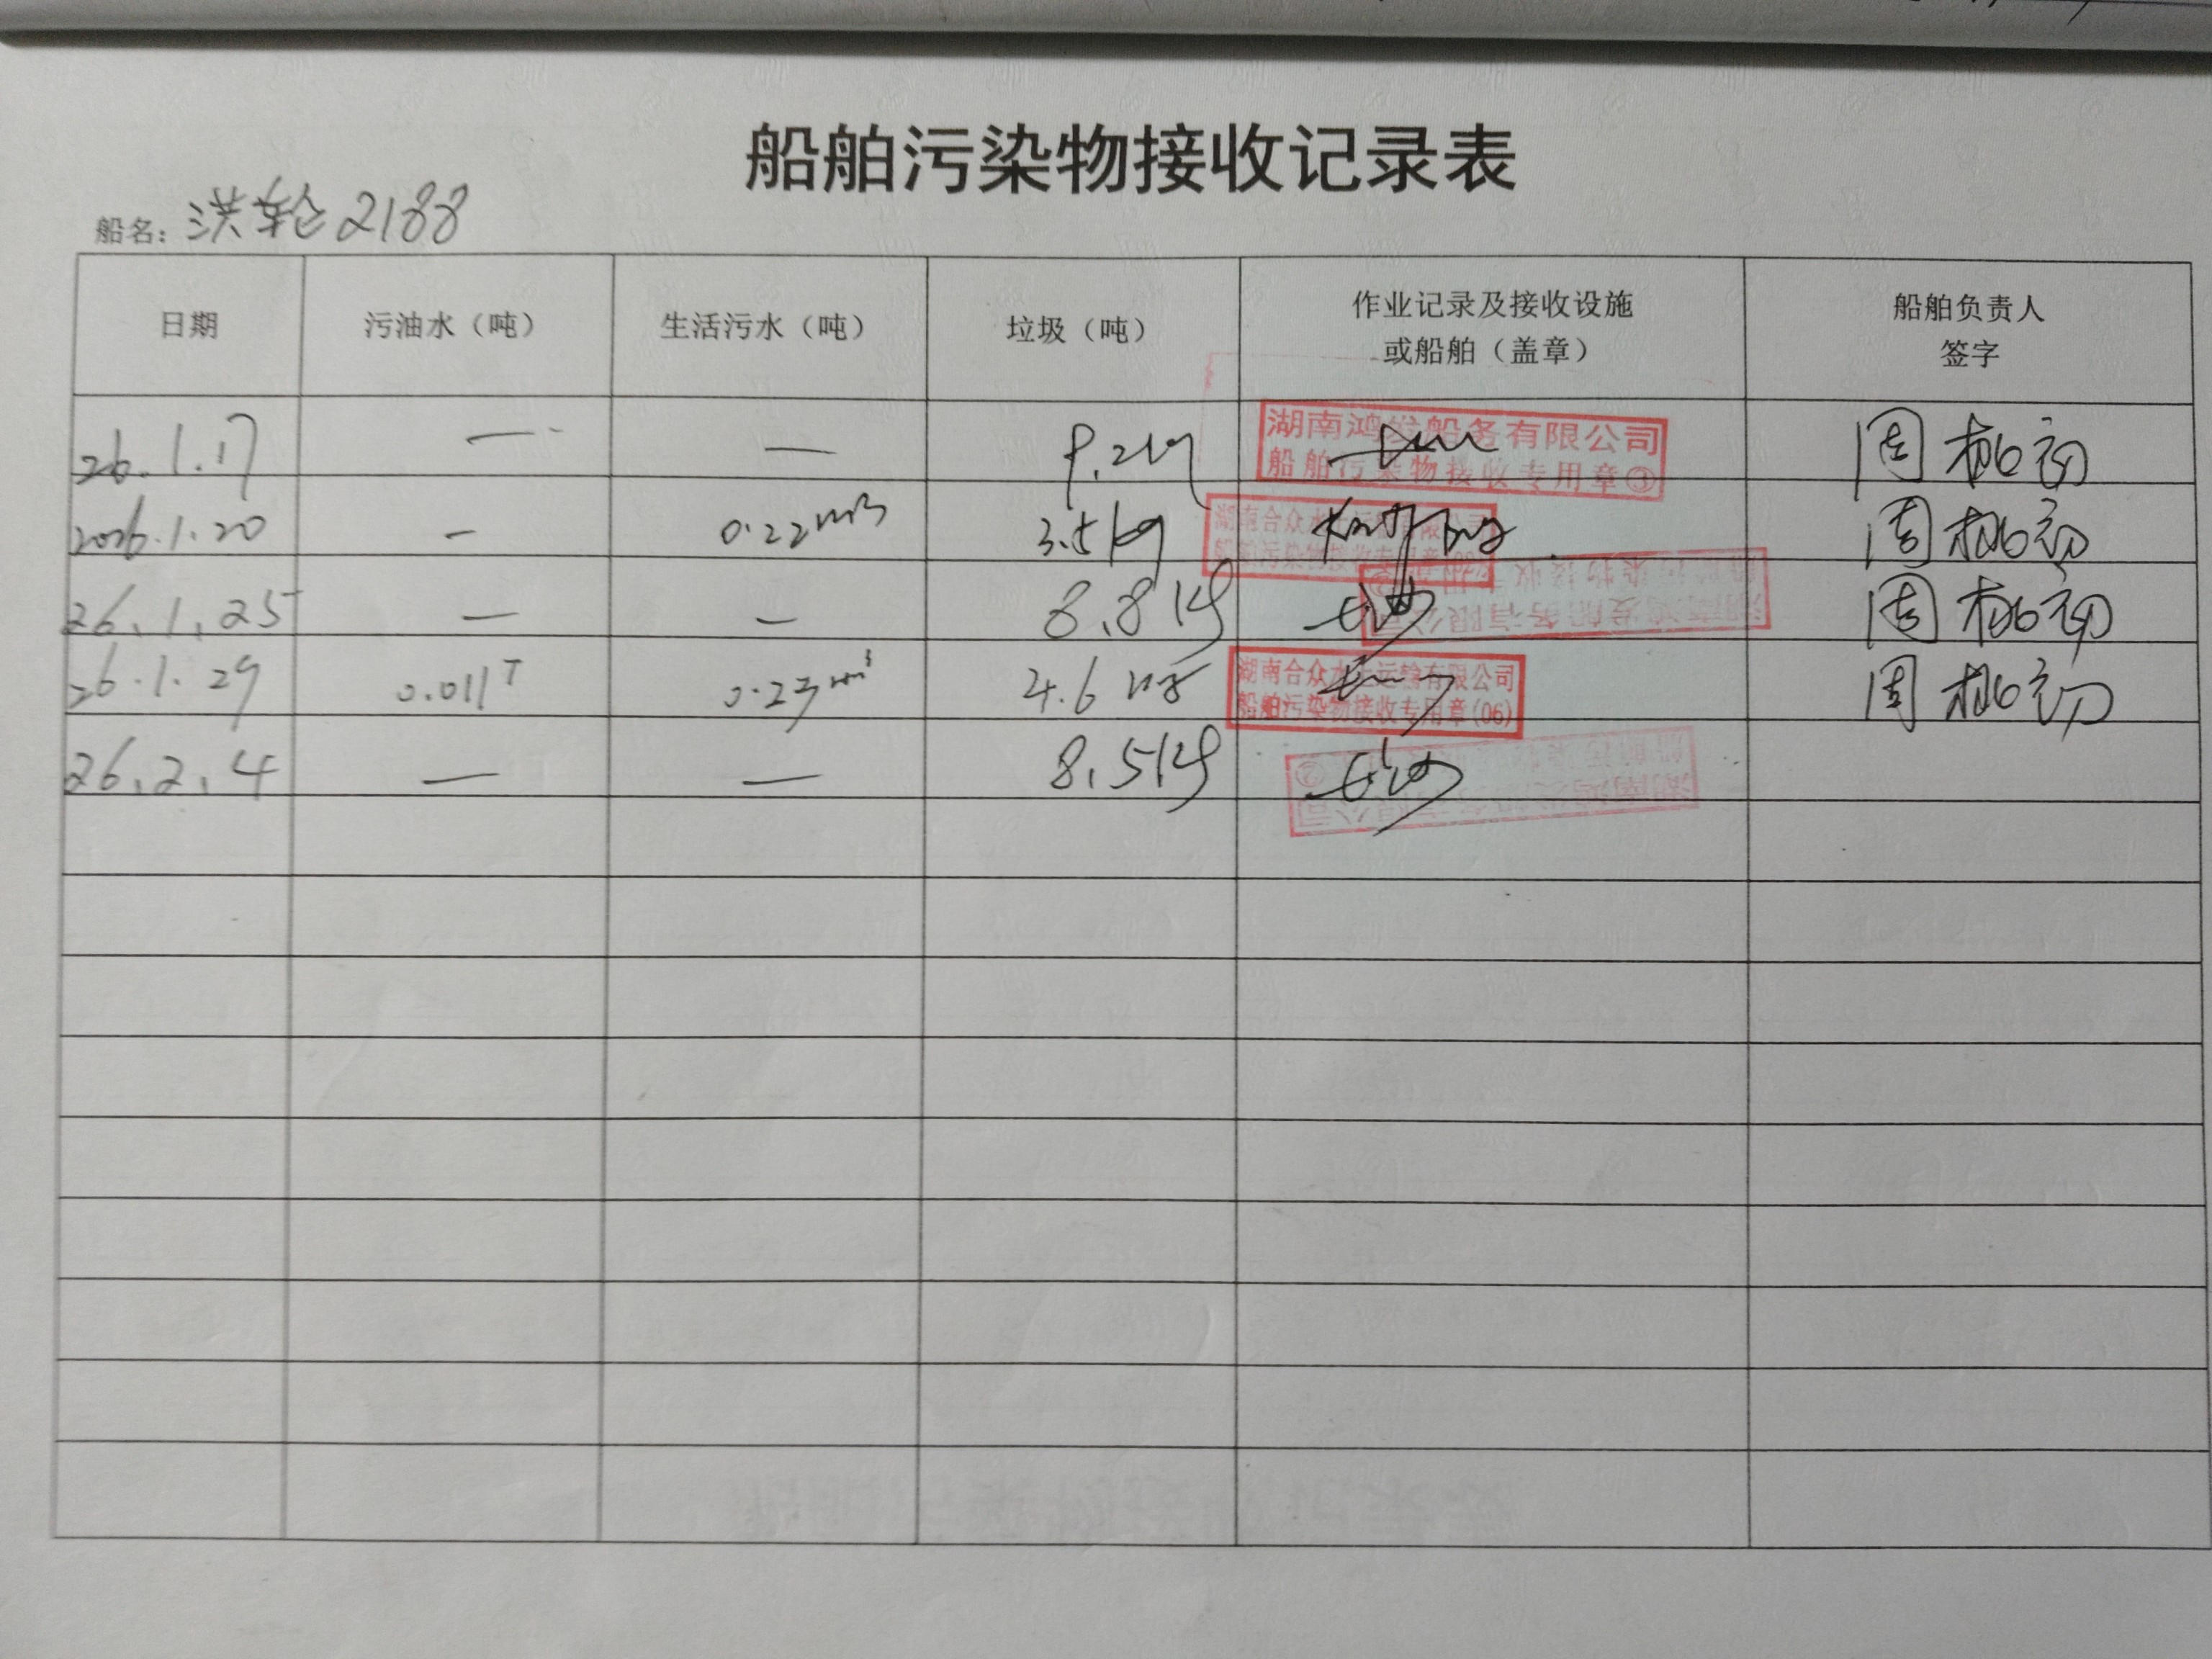 船舶污染物接收记录表
船名：洪轮2188
日期 污油水（吨） 生活污水（吨） 垃圾（吨） 作业记录及接收设施或船舶（盖章） 船舶负责人签字
26.1.17 — — 9.2kg 湖南鸿发船务有限公司 船舶污染物接收专用章③ 周桃初
2026.1.20 — 0.22m3 3.5kg 湖南合众水 限公司 船舶污染物接收专用章 周桃初
26.1.25 — — 8.8kg 湖南鸿发船务有限公司 船舶污染物接收 周桃初
26.1.29 0.011T 0.23m³ 4.6kg 湖南合众水上运输有限公司 船舶污染物接收专用章(06) 周桃初
26.2.4 — — 8.5kg 湖南鸿发船务有限公司